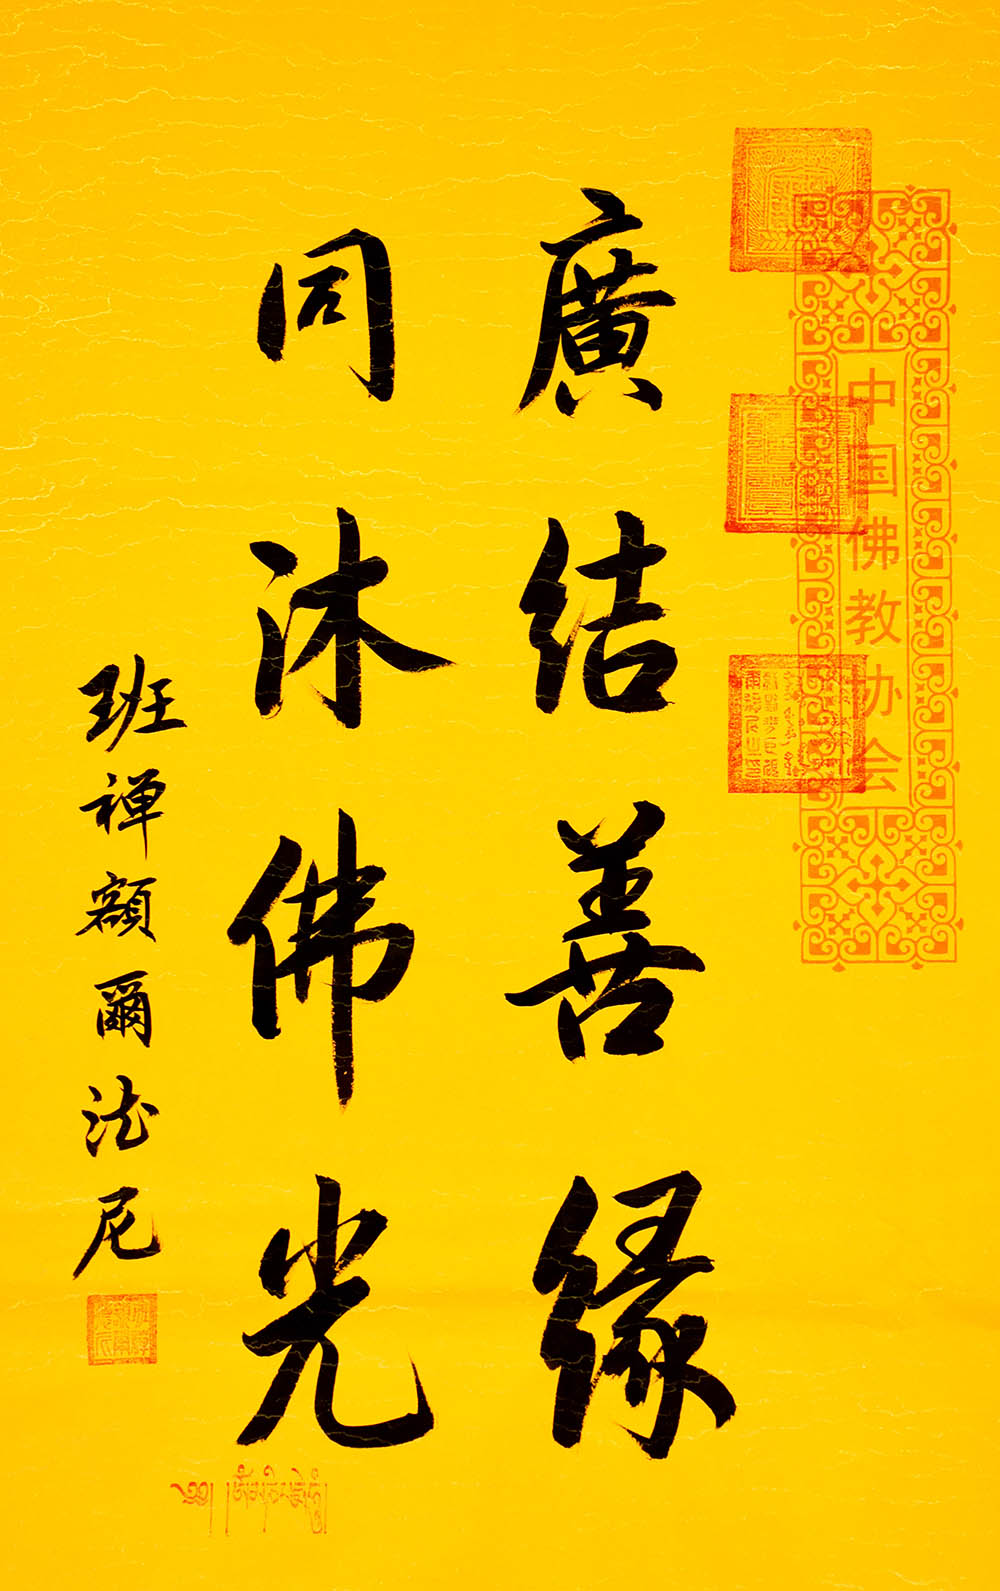 中国佛教协会
廣结善缘
同沐佛光
班禅额爾德尼